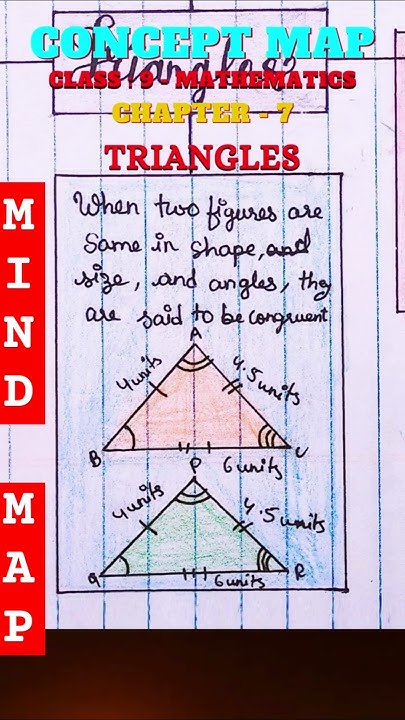 Triangles
CONCEPT MAP
CLASS : 9 - MATHEMATICS
CHAPTER - 7
TRIANGLES
MIND
MAP
When two figures are
Same in shape, and
size, and angles, they
are said to be congruent
A
4 units
4.5 units
B
C
6 units
P
4 units
4.5 units
Q
R
6 units